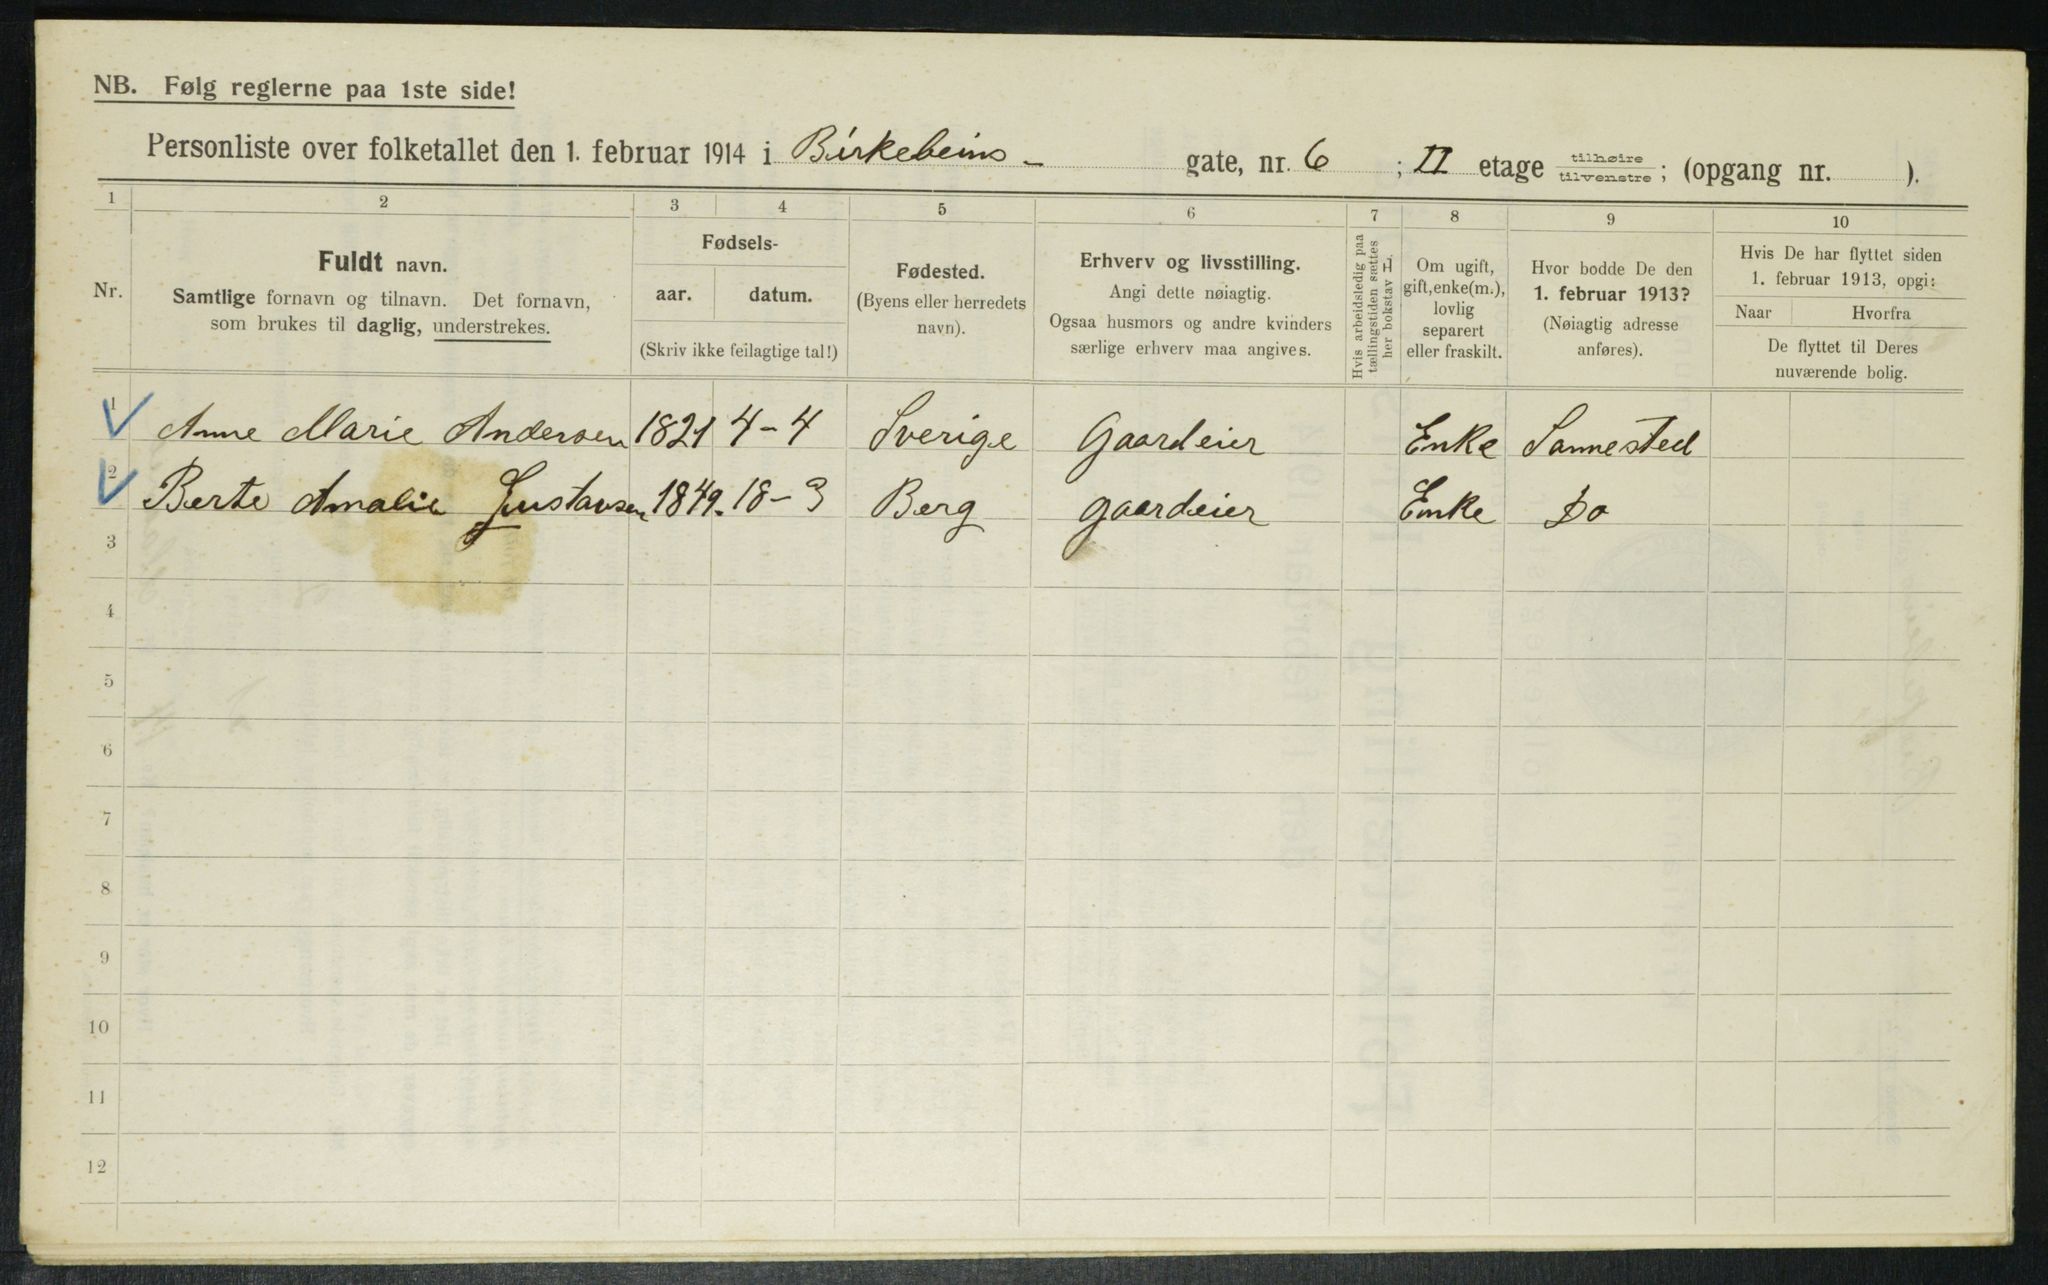 NB. Følg reglerne paa 1ste side!
Personliste over folketallet den 1. februar 1914 i Birkebeins- gate, nr. 6 ; II etage tilhøire tilvenstre ; (opgang nr. ).
1 2 3 4 5 6 7 8 9 10
Nr.
Fuldt navn.
Samtlige fornavn og tilnavn. Det fornavn,
som brukes til daglig, understrekes.
Fødsels-
aar. datum.
(Skriv ikke feilagtige tal!)
Fødested.
(Byens eller herredets
navn).
Erhverv og livsstilling.
Angi dette nøiagtig.
Ogsaa husmors og andre kvinders
særlige erhverv maa angives.
Hvis arbeidsledig paa
tællingstiden sættes
her bokstav H.
Om ugift,
gift, enke(m.),
lovlig
separert
eller fraskilt.
Hvor bodde De den
1. februar 1913?
(Nøiagtig adresse
anføres).
Hvis De har flyttet siden
1. februar 1913, opgi:
Naar Hvorfra
De flyttet til Deres
nuværende bolig.
1 Anne Marie Andersen 1821 4-4 Sverige Gaardeier Enke Sannested
2 Berte Amalie Gustavsen 1849. 18-3 Berg gaardeier Enke Do
3
4
5
6
7
8
9
10
11
12